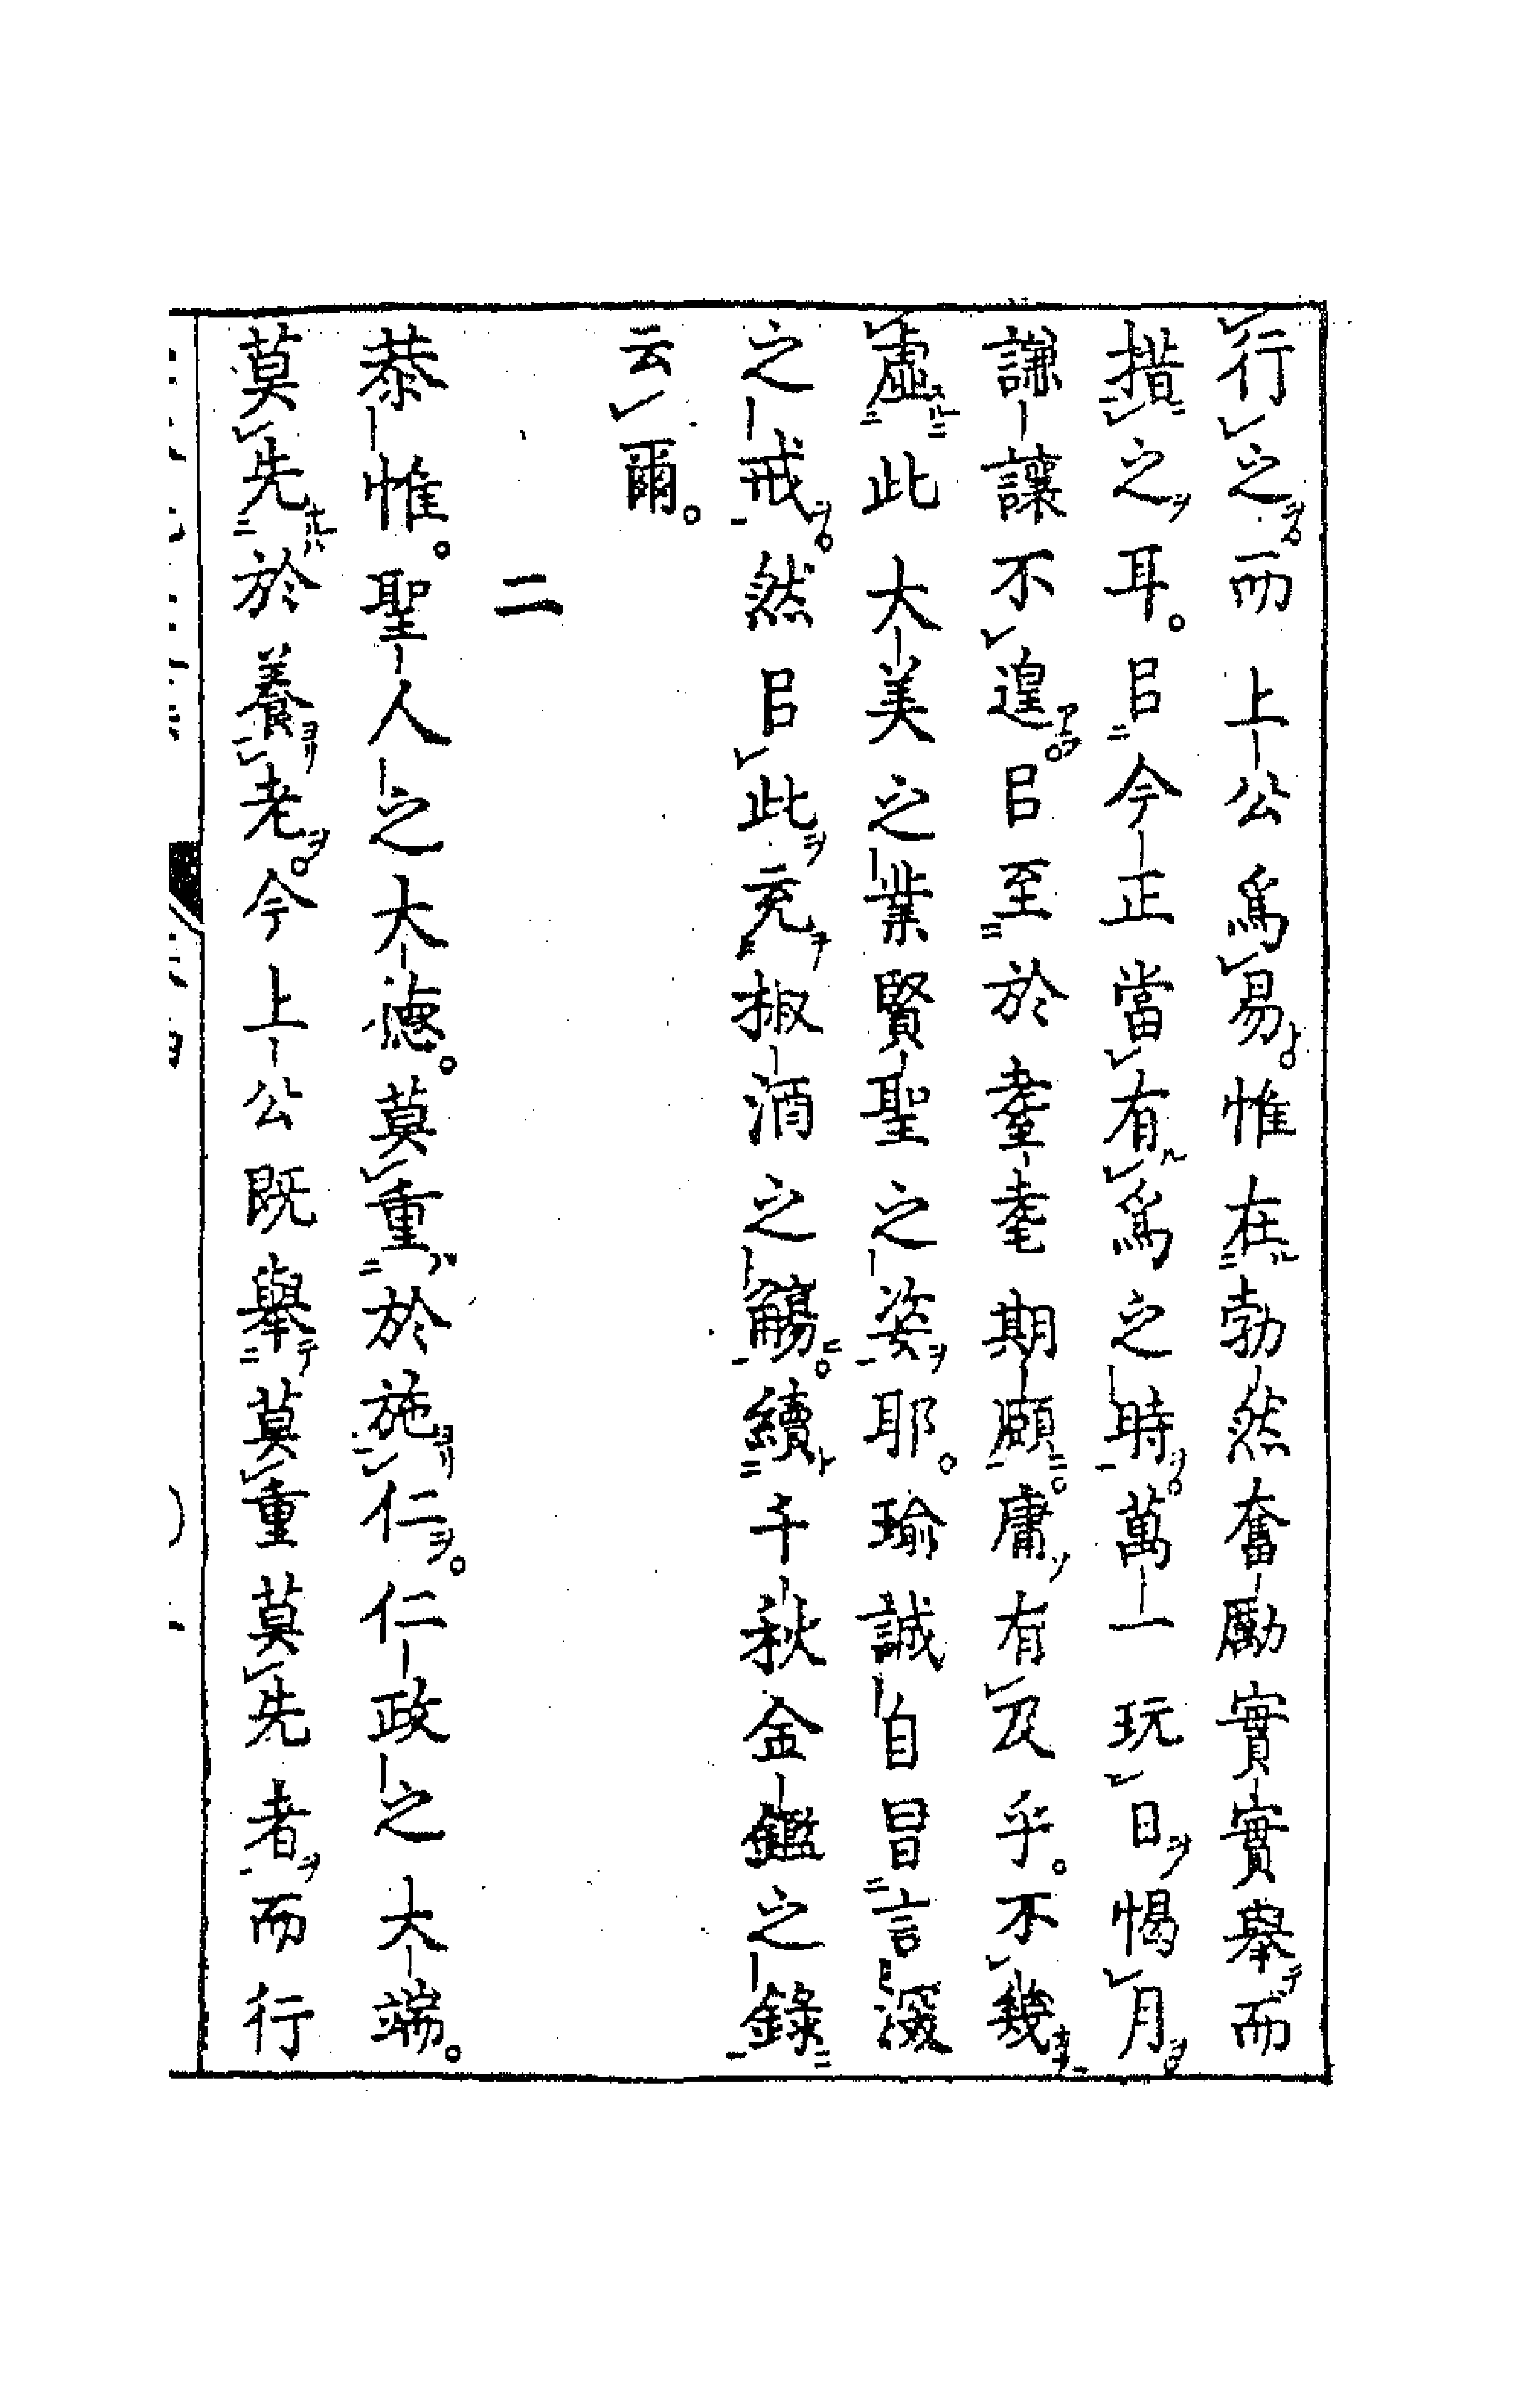 行之而上公爲易惟在勃然奮勵實實舉而
措之耳。㠯今正當有爲之時萬一玩日愒月
謙讓不遑㠯至於耋耄期頤庸有及乎。不幾
虛此大美之業賢聖之姿耶。瑜誠自冒言深
之戒然㠯此充椒酒之觴續千秋金鑑之錄
云爾。
二
恭惟。聖人之大德。莫重於施仁。仁政之大端。
莫先於養老。今上公既舉莫重莫先者而行